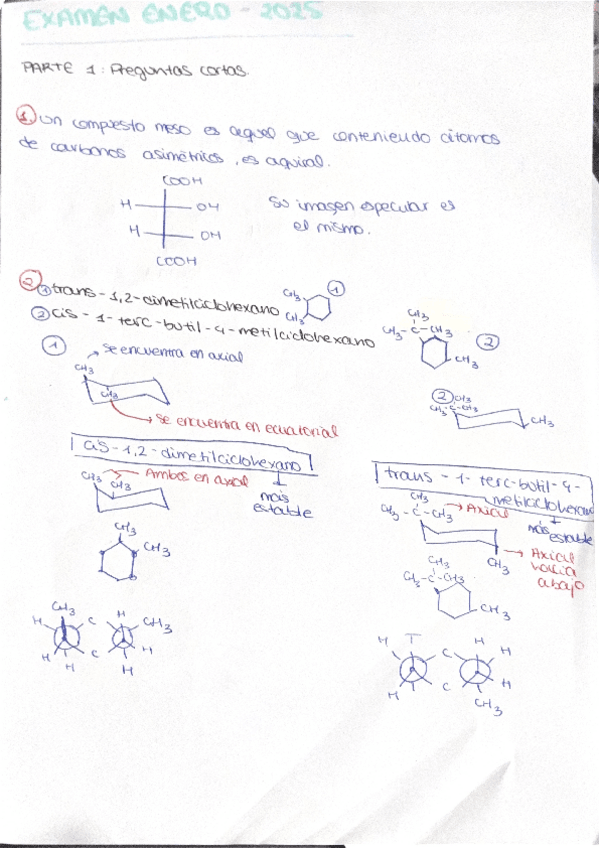 EXAMEN ENERO - 2025
PARTE 1: Preguntas cortas.
1. Un compuesto meso es aquel que conteniendo átomos
de carbonos asimétricos, es aquiral.
COOH
H OH
H OH
COOH
Su imagen especular es
el mismo.
2 1 trans-1,2-dimetilciclohexano
CH3
CH3
1
2 cis-1-terc-butil-4-metilciclohexano
CH3
CH3-C-CH3
CH3
2
1
se encuentra en axial
CH3
CH3
se encuentra en ecuatorial
2 CH3
CH3-C-CH3
CH3
cis-1,2-dimetilciclohexano
más
estable
CH3 CH3
Ambos en axial
CH3
CH3
trans-1-terc-butil-4-
metilciclohexano
más
estable
CH3
CH3-C-CH3
Axial
CH3
Axial
hacia
abajo
CH3
CH3-C-CH3
CH3
CH3
H C H CH3
H H C H H
H T C H H
H C H
CH3